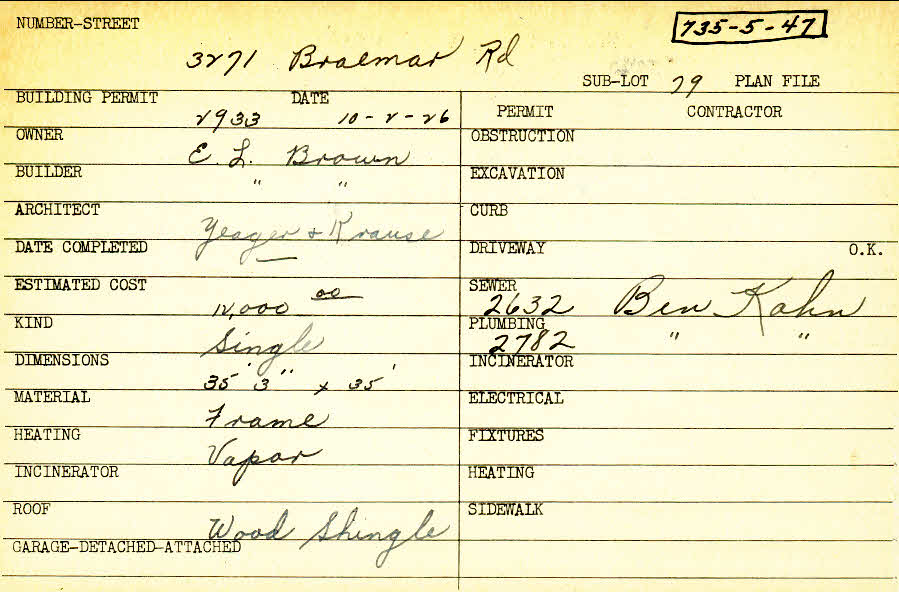 NUMBER-STREET
735-5-47
3271 Braemar Rd
SUB-LOT 79 PLAN FILE
BUILDING PERMIT DATE
2933 10-2-26
PERMIT CONTRACTOR
OWNER
E. L. Brown
OBSTRUCTION
BUILDER
" "
EXCAVATION
ARCHITECT
Yeager & Krause
CURB
DATE COMPLETED
—
DRIVEWAY O.K.
ESTIMATED COST
12,000 00
SEWER
2632 Ben Kahn
KIND
Single
PLUMBING
2782 " "
DIMENSIONS
35' 3" x 35'
INCINERATOR
MATERIAL
Frame
ELECTRICAL
HEATING
Vapor
FIXTURES
INCINERATOR
HEATING
ROOF
Wood Shingle
SIDEWALK
GARAGE-DETACHED-ATTACHED